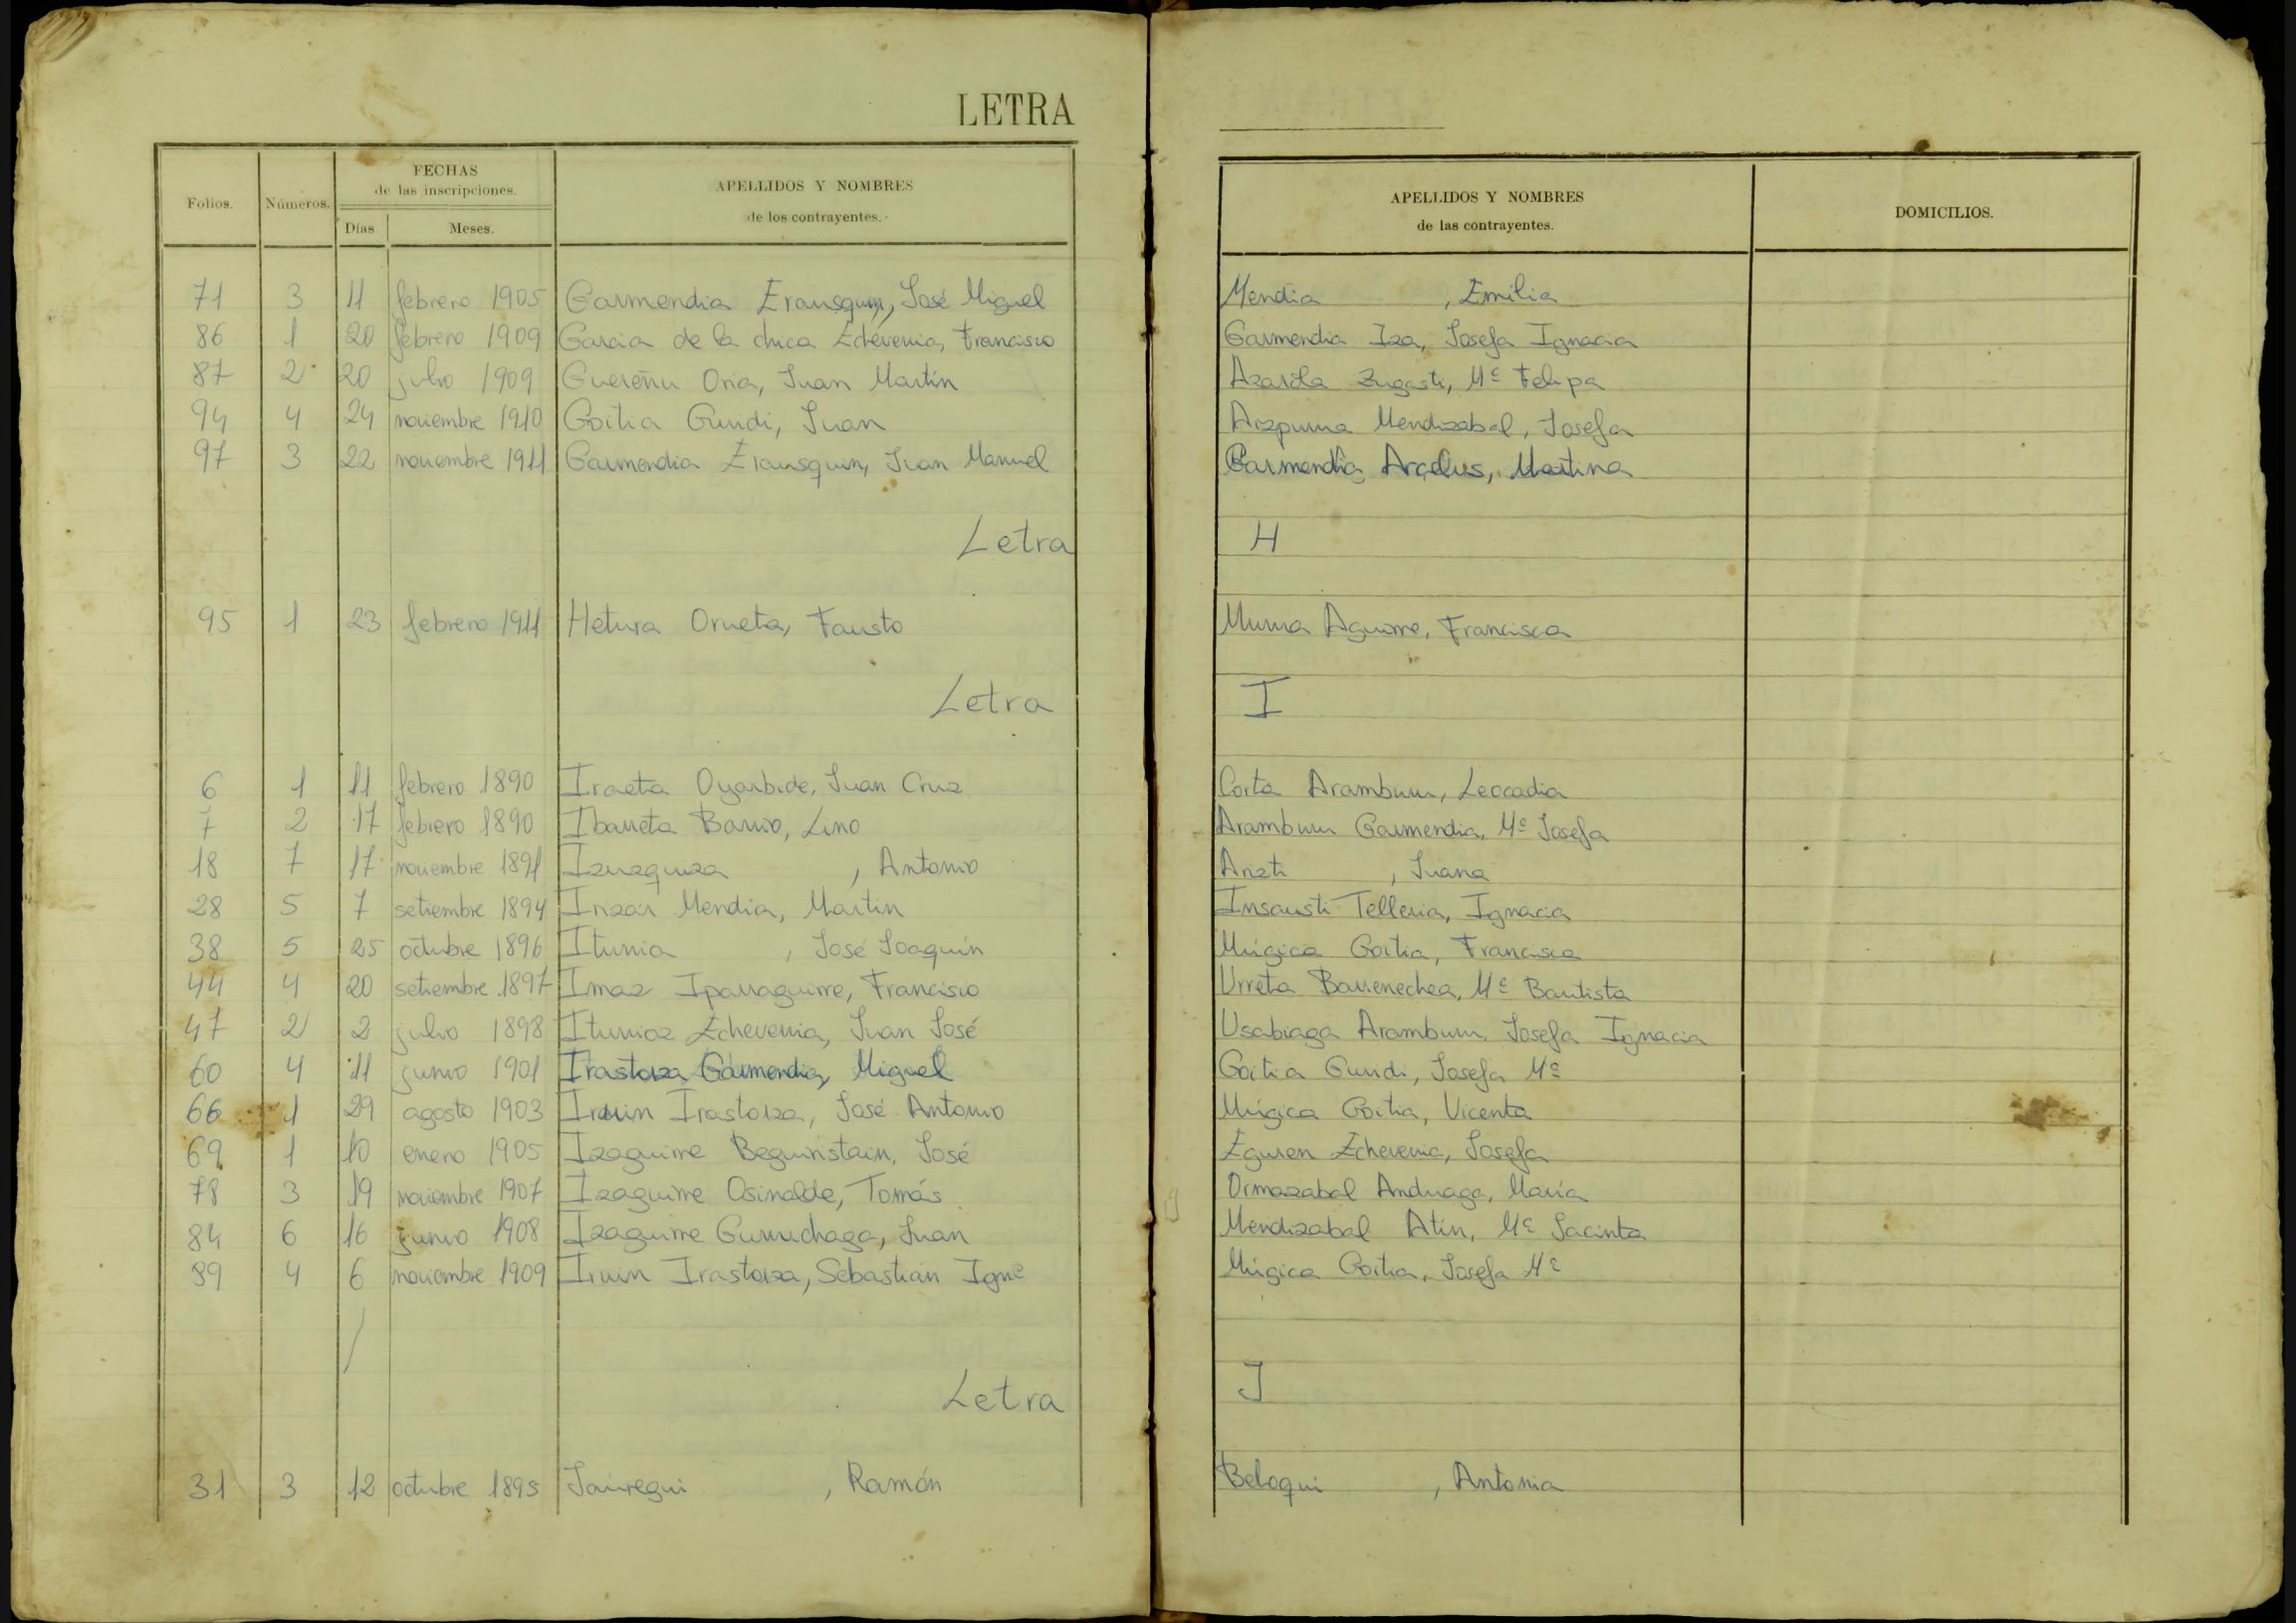 LETRA
Folios. Números. FECHAS de las inscripciones. Días Meses. APELLIDOS Y NOMBRES de los contrayentes. APELLIDOS Y NOMBRES de las contrayentes. DOMICILIOS.
71 3 11 febrero 1905 Garmendia Erausquin, José Miguel Mendia , Emilia
86 1 20 febrero 1909 Garcia de la chica Echeverria, Francisco Garmendia Iza, Josefa Ignacia
87 2 20 julio 1909 Guereñu Oria, Juan Martín Azarola Zugasti, Mª Felipa
94 4 24 noviembre 1910 Goitia Guridi, Juan Aizpurua Mendizabal, Josefa
97 3 22 noviembre 1911 Garmendia Erausquin, Juan Manuel Garmendia Arcelus, Martina
Letra H
95 1 23 febrero 1911 Hetura Orueta, Fausto Murua Aguirre, Francisca
Letra I
6 1 11 febrero 1890 Iraeta Oyarbide, Juan Cruz Corta Aramburu, Leocadia
7 2 17 febrero 1890 Ibarreta Barrio, Lino Aramburu Garmendia, Mª Josefa
18 7 17 noviembre 1891 Izuzquiza , Antonio , Juana
28 5 7 setiembre 1894 Inzar Mendia, Martin Insausti Telleria, Ignacia
38 5 25 octubre 1896 Iturria , José Joaquín Múgica Goitia, Francisca
44 4 20 setiembre 1897 Imaz Iparraguirre, Francisco Urreta Barrenechea, Mª Bautista
47 2 2 julio 1898 Iturrioz Echeverria, Juan José Usabiaga Aramburu, Josefa Ignacia
60 4 11 junio 1901 Irastorza Garmendia, Miguel Goitia Guridi, Josefa Mª
66 1 29 agosto 1903 Iruin Irastorza, José Antonio Múgica Goitia, Vicenta
69 1 10 enero 1905 Izaguirre Beguiristain, José Eguren Echeverria, Josefa
78 3 19 noviembre 1907 Izaguirre Osinalde, Tomás Ormazabal Anduaga, María
84 6 16 junio 1908 Izaguirre Gurruchaga, Juan Mendizabal Atín, Mª Jacinta
89 4 6 noviembre 1909 Iruin Irastorza, Sebastián Ignº Múgica Goitia, Josefa Mª
Letra J
31 3 12 octubre 1895 Jaúregui , Ramón Beloqui , Antonia